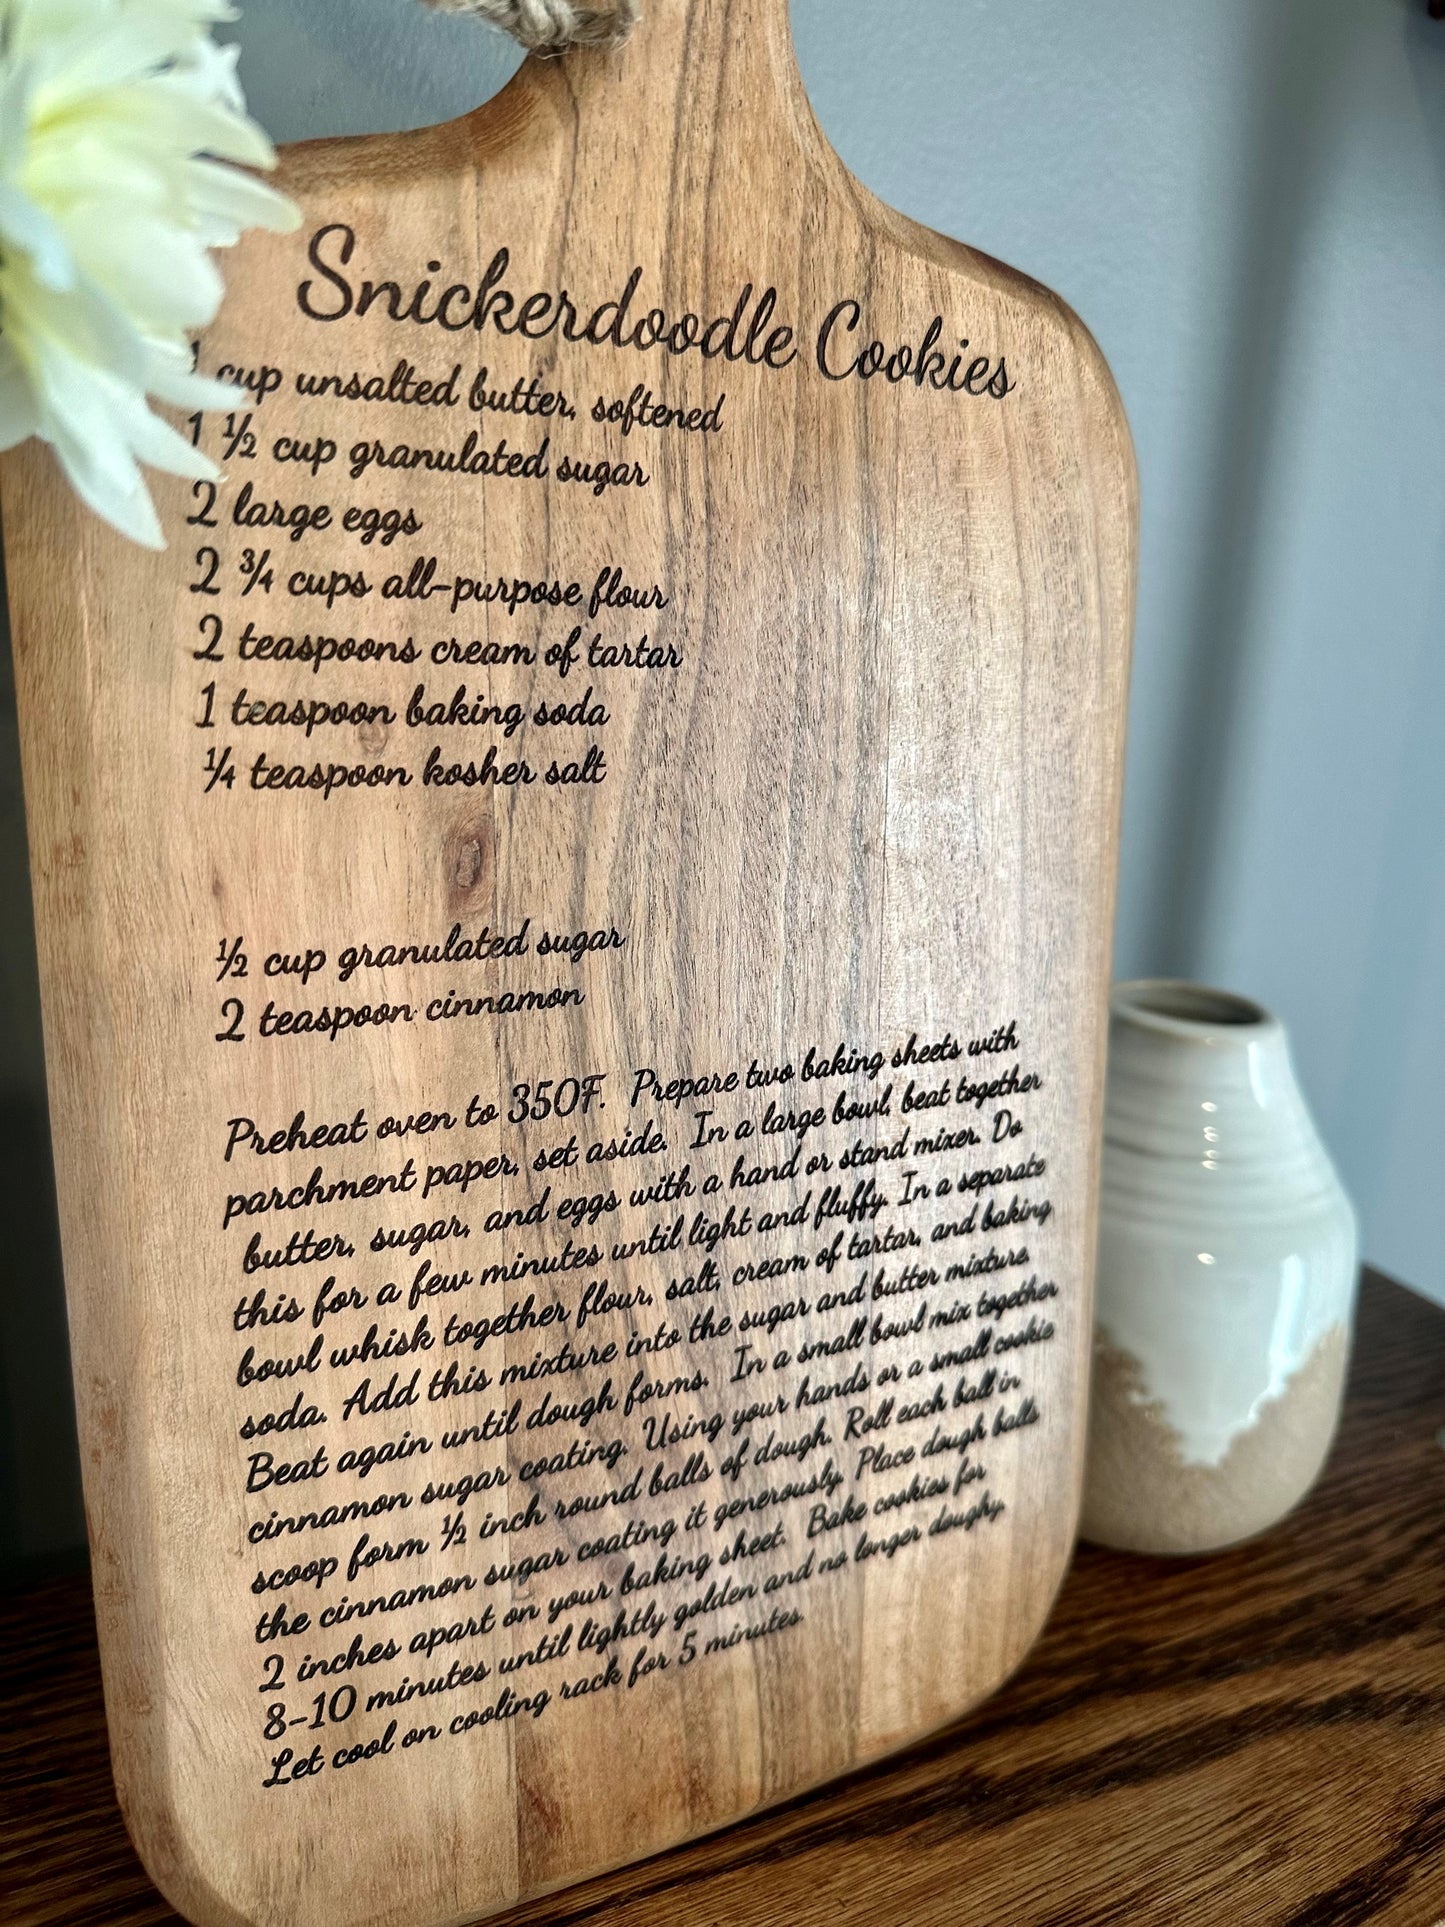 Snickerdoodle Cookies
1 cup unsalted butter, softened
1 ½ cup granulated sugar
2 large eggs
2 ¾ cups all-purpose flour
2 teaspoons cream of tartar
1 teaspoon baking soda
¼ teaspoon kosher salt
½ cup granulated sugar
2 teaspoon cinnamon
Preheat oven to 350F. Prepare two baking sheets with
parchment paper, set aside. In a large bowl, beat together
butter, sugar, and eggs with a hand or stand mixer. Do
this for a few minutes until light and fluffy. In a separate
bowl whisk together flour, salt, cream of tartar, and baking
soda. Add this mixture into the sugar and butter mixture.
Beat again until dough forms. In a small bowl mix together
cinnamon sugar coating. Using your hands or a small cookie
scoop form ½ inch round balls of dough. Roll each ball in
the cinnamon sugar coating it generously. Place dough balls
2 inches apart on your baking sheet. Bake cookies for
8-10 minutes until lightly golden and no longer doughy.
Let cool on cooling rack for 5 minutes.